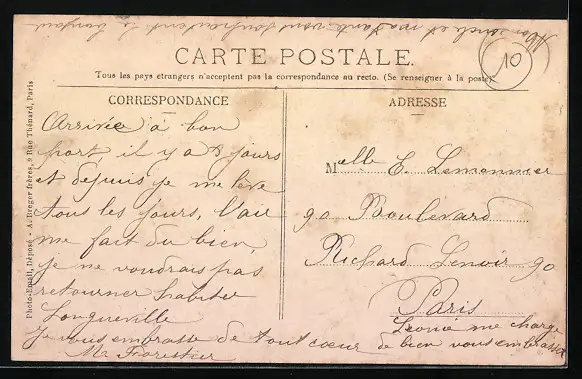 Mon oncle et ma tante vous souhaitent le bonjour
CARTE POSTALE.
Tous les pays étrangers n'acceptent pas la correspondance au recto. (Se renseigner à la poste)
10
CORRESPONDANCE
Arrivée à bon
port, il y a 8 jours
et depuis je me lève
tous les jours, l'air
me fait du bien,
je ne voudrais pas
retourner habiter
Longueville
Je vous embrasse de tout cœur
M. Forestier
ADRESSE
Melle E. Lemonnier
90 Boulevard
Richard Lenoir 90
Paris
Léonie me charge
de bien vous embrasser
Photo-Email, Déposé - A. Breger frères, 9 Rue Thénard, Paris